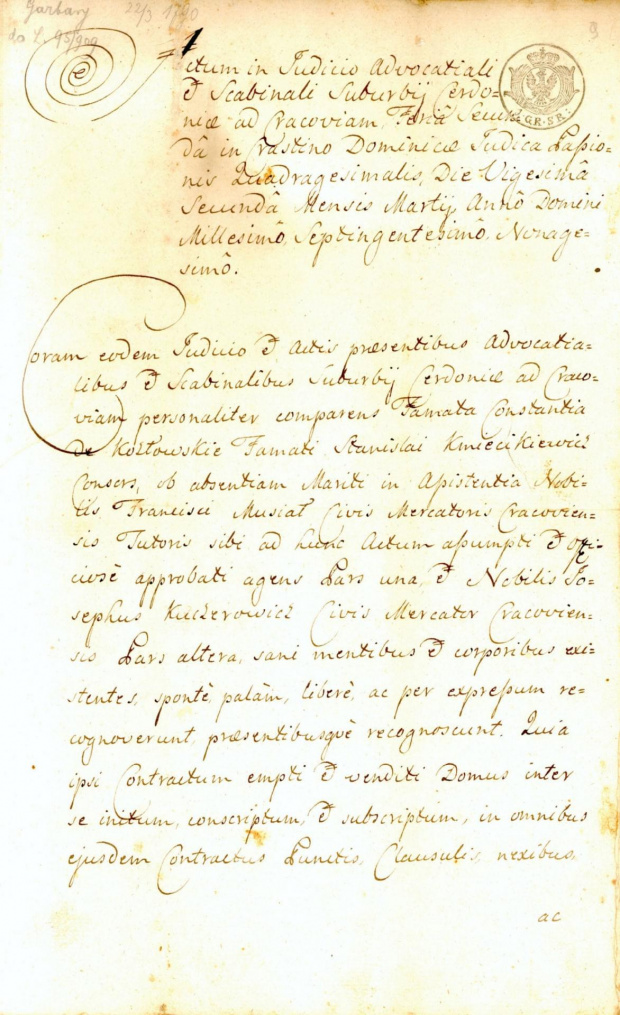 Garbary 22/3 1790
do L. 95/909
9
Actum in Judicio Advocatiali
& Scabinali Suburbij Cerdo=
niæ ad Cracoviam, Feriâ Secun
dâ in Crastino Dominicæ Judica Passio=
nis Quadragesimalis, Die Vigesimâ
Secundâ Mensis Martij, Annô Domini
Millesimô, Septingentesimô, Nonage=
simô.
GR·SR·
Coram eodem Judicio & Actis præsentibus Advocatia=
libus & Scabinalibus Suburbij Cerdoniæ ad Craco=
viam personaliter comparens Famata Constantia
de Kozłowskie Famati Stanislai Kmiecikiewicz
Consors, ob absentiam Mariti in Assistentia Nobi=
lis Francisci Musiał Civis Mercatoris Cracovien=
sis Tutoris sibi ad hunc Actum assumpti & offi=
ciosè approbati agens Pars una, & Nobilis Jo=
sephus Kuczerowicz Civis Mercator Cracovien=
sis Pars altera, sani mentibus & corporibus exi=
stentes, spontè, palàm, liberè, ac per expressum re=
cognoverunt, præsentibusquè recognoscunt. Quia
ipsi Contractum empti & venditi Domus inter
se initum, conscriptum, & subscriptum, in omnibus
ejusdem Contractus Punctis, Clausulis, nexibus,
ac